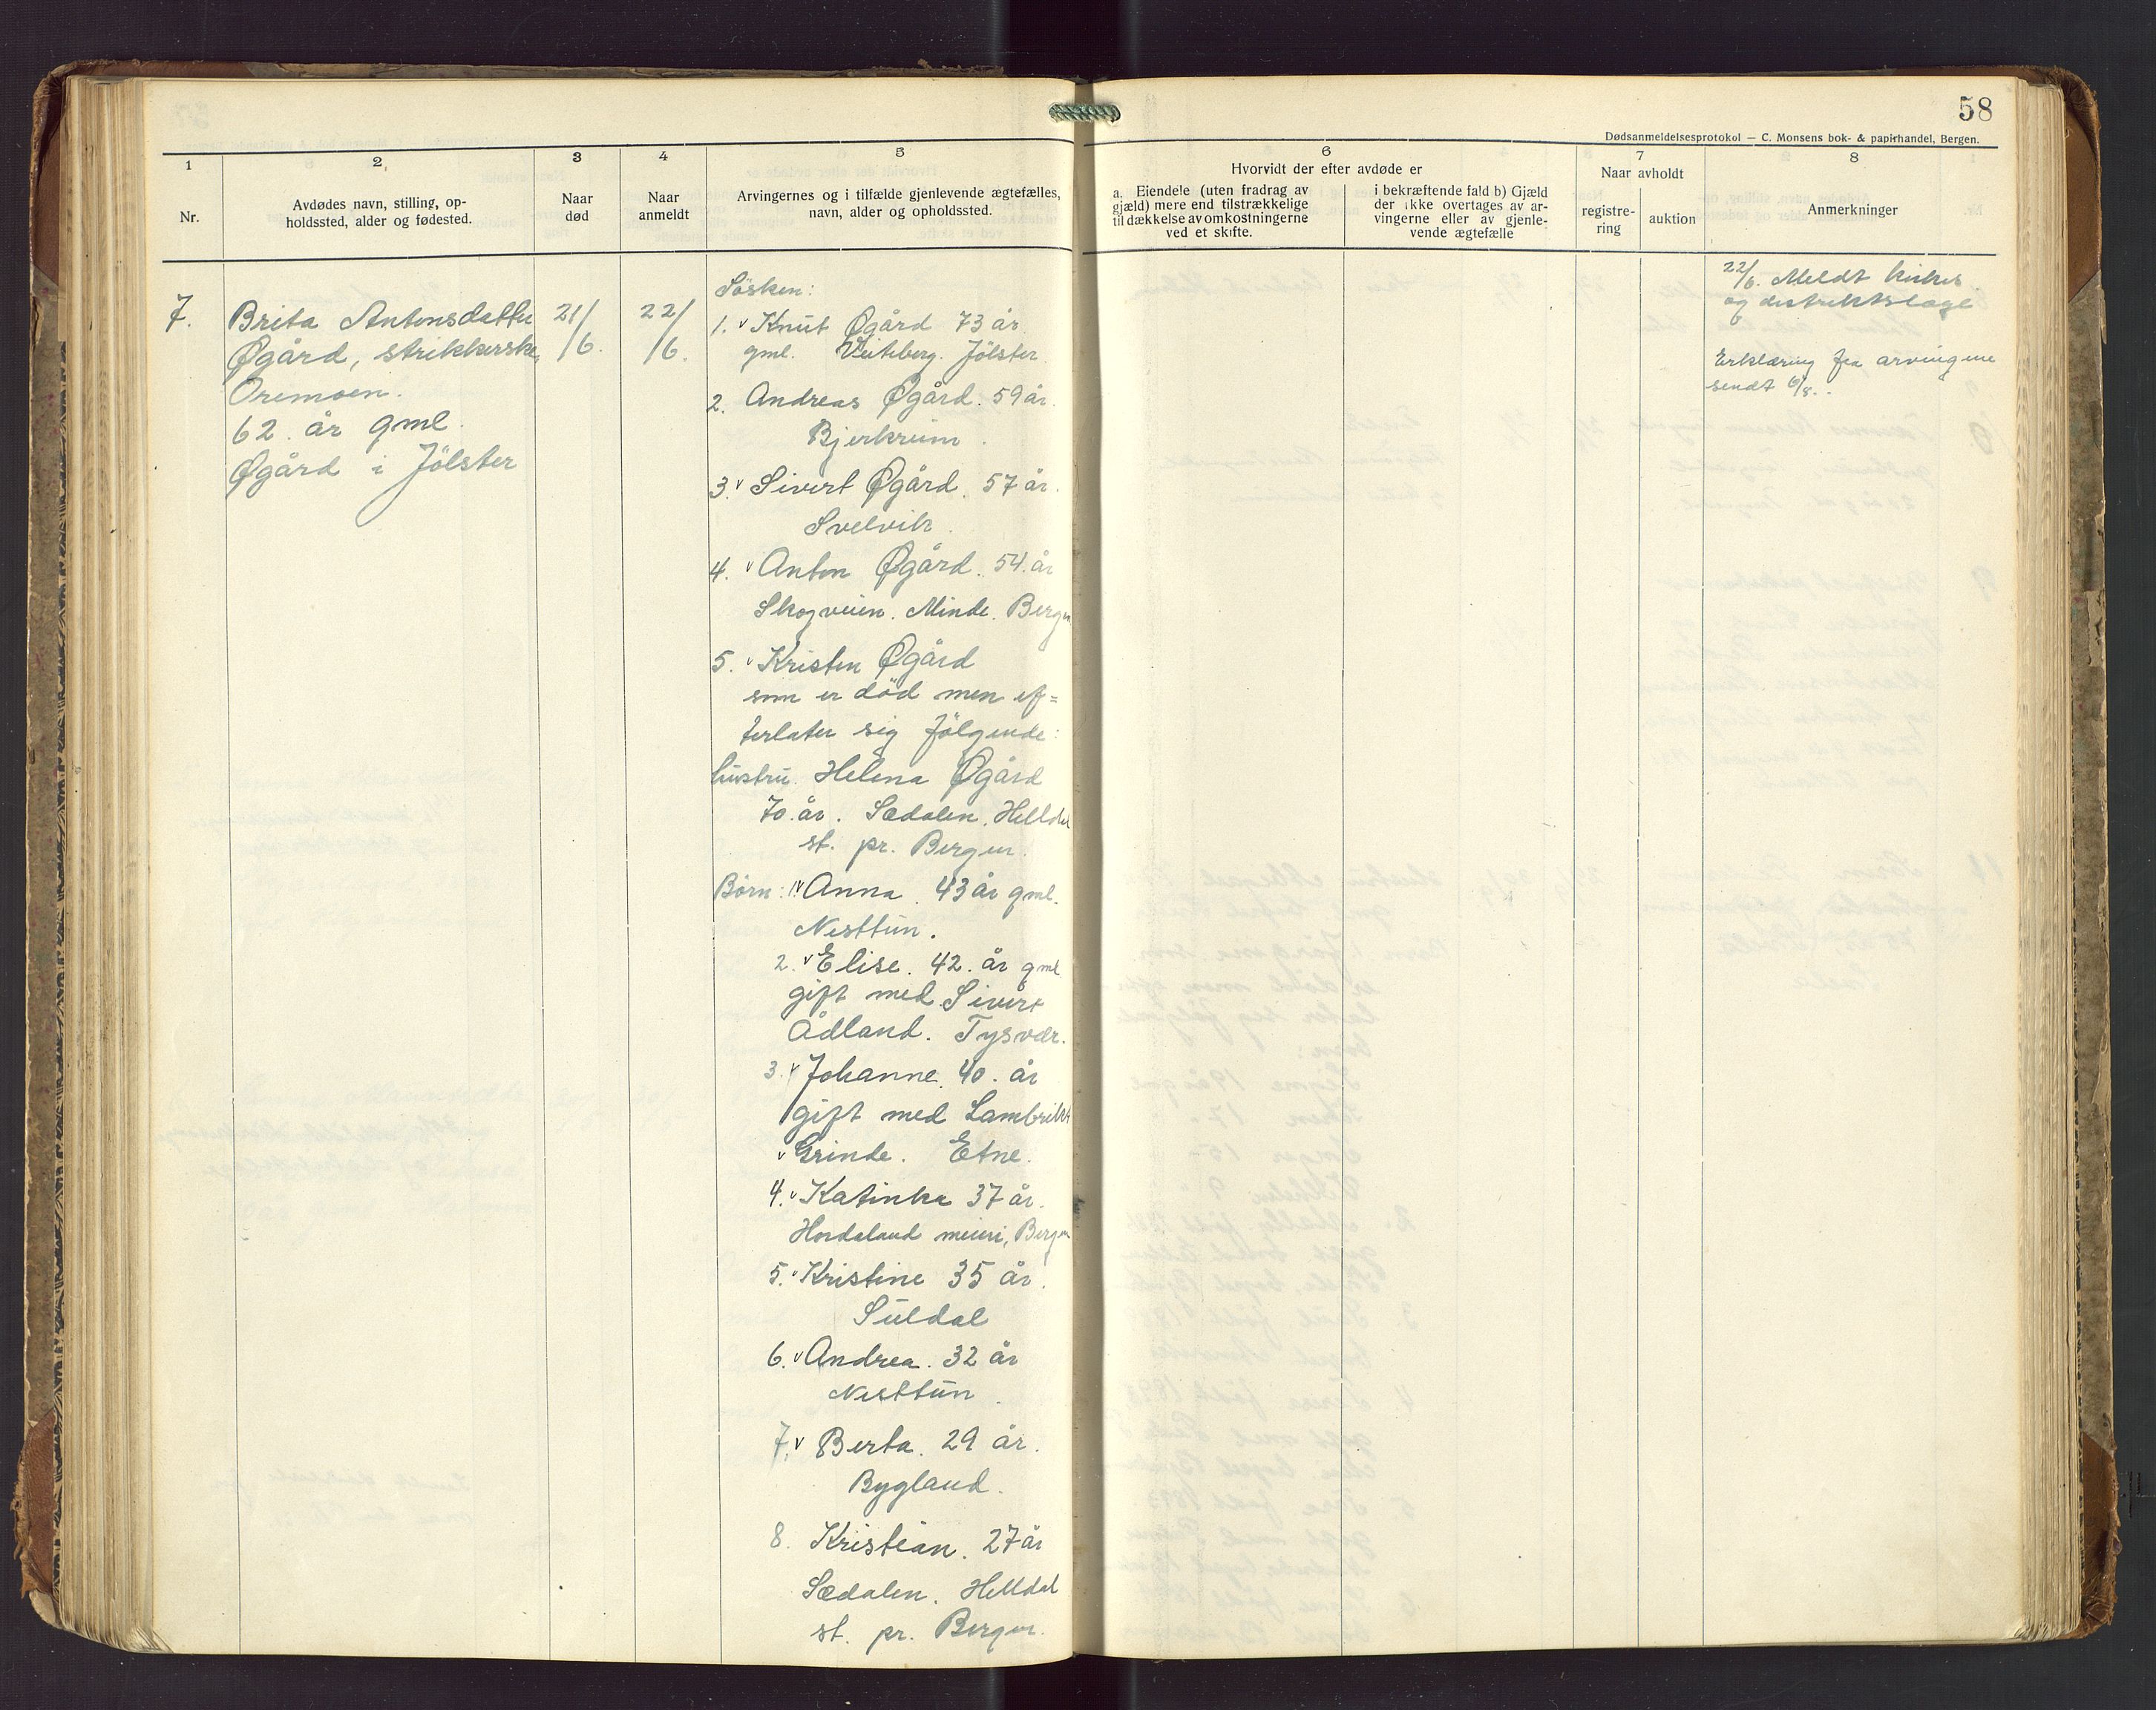 58
Dødsanmeldelsesprotokol — C. Monsens bok- & papirhandel, Bergen.
1
Nr.
2
Avdødes navn, stilling, op-
holdssted, alder og fødested.
3
Naar
død
4
Naar
anmeldt
5
Arvingernes og i tilfælde gjenlevende ægtefælles,
navn, alder og opholdssted.
6
Hvorvidt der efter avdøde er
a. Eiendele (uten fradrag av
gjæld) mere end tilstrækkelige
til dækkelse av omkostningerne
ved et skifte.
i bekræftende fald b) Gjæld
der ikke overtages av ar-
vingerne eller av gjenle-
vende ægtefælle
7
Naar avholdt
registre-
ring
auktion
8
Anmerkninger
7.
Brita Antonsdatter
Øgård, strikkerske,
Oremoen.
62 år gml.
Øgård i Jölster
21/
/6.
22/
/6.
Sösken:
1. v Knut Øgård 73 år
gml. Veiteberg. Jölster
2. Andreas Øgård. 59 år.
Bjerkreim.
3. v Sivert Øgård. 57 år.
Svelvik.
4. v Anton Øgård. 54. år
Skogveien. Minde. Bergen.
5. v Kristen Øgård
som er död men ef=
terlater sig fölgende:
hustru. Helena Øgård
70. år. Sædalen. Helldal
st. pr. Bergen.
Børn: 1 v Anna. 43 år gml.
Nesttun.
2. v Elise. 42. år gml
gift med Sivert
Ådland. Tysvær.
3. v Johanne. 40. år
gift med Lambrikt
v Grinde. Etne.
4. v Katinka 37 år.
Hordaland meieri, Bergen
5. v Kristine 35 år.
Suldal
6. v Andrea. 32 år
Nesttun.
7. v Berta. 29 år.
Bygland.
8. Kristian. 27 år
Sædalen. Helldal
st. pr. Bergen.
22/6. Meldt kirkes.
og distriktslæge
Erklæring fra arvingene
sendt 6/8.